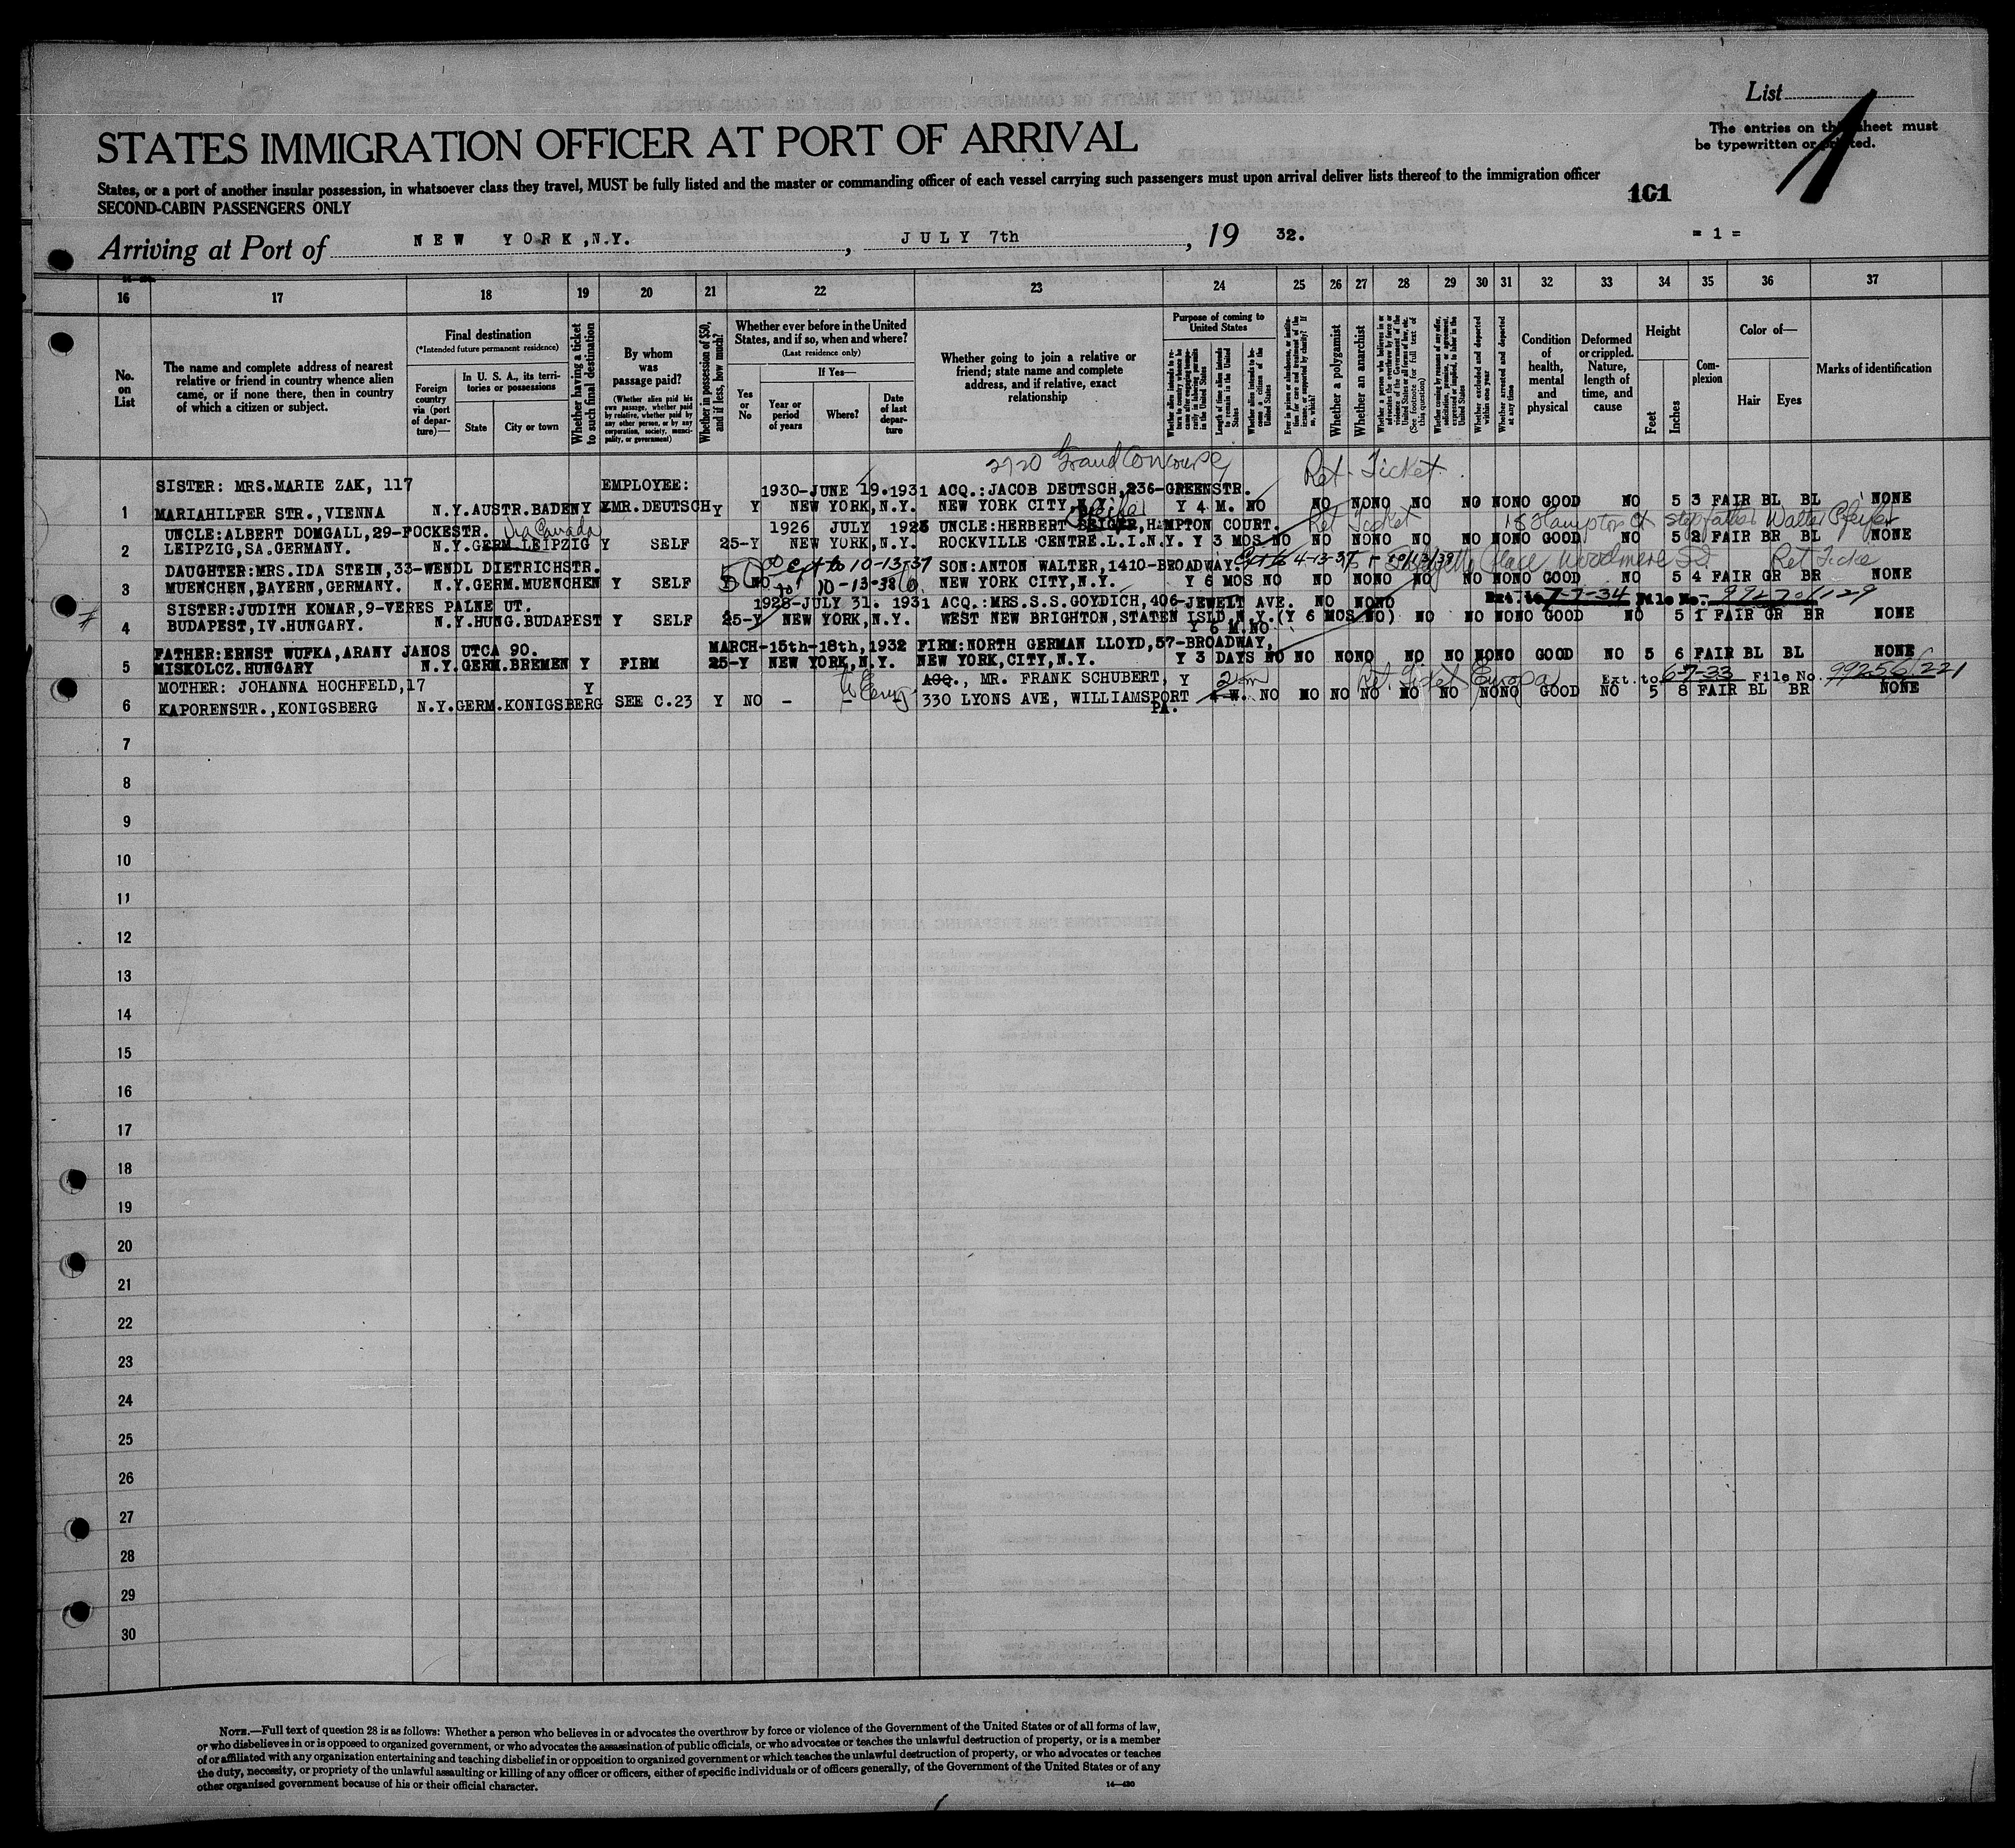 List
The entries on this sheet must
be typewritten or printed.
1
STATES IMMIGRATION OFFICER AT PORT OF ARRIVAL
States, or a port of another insular possession, in whatsoever class they travel, MUST be fully listed and the master or commanding officer of each vessel carrying such passengers must upon arrival deliver lists thereof to the immigration officer
SECOND-CABIN PASSENGERS ONLY
101
Arriving at Port of NEW YORK, N.Y., JULY 7th, 19 32.
= 1 =
16 17 18 19 20 21 22 23 24 25 26 27 28 29 30 31 32 33 34 35 36 37
No. on List
The name and complete address of nearest relative or friend in country whence alien came, or if none there, then in country of which a citizen or subject.
Final destination
(*Intended future permanent residence)
Foreign country via (port of departure)—
In U. S. A., its territories or possessions
State
City or town
Whether having a ticket to such final destination
By whom was passage paid?
(Whether alien paid his own passage, whether paid by relative, whether paid by any other person, or by any corporation, society, municipality, or government)
Whether in possession of $50, and if less, how much?
Whether ever before in the United States, and if so, when and where?
(Last residence only)
Yes or No
If Yes—
Year or period of years
Where?
Date of last departure
Whether going to join a relative or friend; state name and complete address, and if relative, exact relationship
Purpose of coming to United States
Length of time alien intends to remain in the United States
Whether alien intends to become a citizen of the United States
Whether a polygamist
Whether an anarchist
Whether excluded and deported within one year
Whether arrested and deported at any time
Condition of health, mental and physical
Deformed or crippled. Nature, length of time, and cause
Height
Feet
Inches
Complexion
Color of—
Hair
Eyes
Marks of identification
2720 Grand Concourse
Ret. Ticket
SISTER: MRS.MARIE ZAK, 117 EMPLOYEE: 1930-JUNE 19.1931 ACQ.:JACOB DEUTSCH,236-GREENSTR.
1 MARIAHILFER STR.,VIENNA N.Y.AUSTR.BADENY EMR.DEUTSCH Y Y NEW YORK,N.Y. NEW YORK CITY,N.Y. Y 4 M. NO NO NONO NO NO NONO GOOD NO 5 3 FAIR BL BL NONE
UNCLE:ALBERT DOMGALL,29-FOCKESTR. via Canada 1926 JULY 1926 UNCLE:HERBERT HAMPTON COURT. Ret Ticket 15 Hampton Ct stepfather Walter Pfeifer
2 LEIPZIG,SA.GERMANY. N.Y.GERM.LEIPZIG Y SELF 25-Y NEW YORK,N.Y. ROCKVILLE CENTRE.L.I.N.Y. Y 3 MOS NO NO NONO NO NO NONO GOOD NO 5 2 FAIR BR BL NONE
DAUGHTER:MRS.IDA STEIN,33-WENDL DIETRICHSTR. ext to 10-13-37 SON:ANTON WALTER,1410-BROADWAY. Ext to 4-13-37 Place Woodmere Ret Ticke
3 MUENCHEN,BAYERN,GERMANY. N.Y.GERM.MUENCHEN Y SELF NO to 10-13-38 NEW YORK CITY,N.Y. Y 6 MOS NO NO NONO NO NO NONO GOOD NO 5 4 FAIR GR BR NONE
SISTER:JUDITH KOMAR,9-VERES PALNE UT. 1928-JULY 31. 1931 ACQ.:MRS.S.S.GOYDICH,406-JEWETT AVE. NO NONO Ext. to 7-7-34 File No. 99270/129
4 BUDAPEST,IV.HUNGARY. N.Y.HUNG.BUDAPEST Y SELF 25-Y NEW YORK,N.Y. WEST NEW BRIGHTON,STATEN ISLD,N.Y.(Y 6 MOS NO) NO NO NONO GOOD NO 5 1 FAIR GR BR NONE
Y 6 M.NO
FATHER:ERNST WUFKA,ARANY JANOS UTCA 90. MARCH-15th-18th,1932 FIRM:NORTH GERMAN LLOYD,57-BROADWAY,
5 MISKOLCZ.HUNGARY N.Y.GERM.BREMEN Y FIRM 25-Y NEW YORK,N.Y. NEW YORK,CITY,N.Y. Y 3 DAYS NO NO NONO NO NO NONO GOOD NO 5 6 FAIR BL BL NONE
MOTHER: JOHANNA HOCHFELD,17 Y ACQ., MR. FRANK SCHUBERT, Y 2 m Ret. Ticket Europa Ext. to 6-7-33 File No. 99256/221
6 KAPORENSTR.,KONIGSBERG N.Y.GERM.KONIGSBERG SEE C.23 Y NO - - - 330 LYONS AVE, WILLIAMSPORT 4 W. NO NO NO NO NO NO NONO GOOD NO 5 8 FAIR BL BR NONE
PA.
7
8
9
10
11
12
13
14
15
16
17
18
19
20
21
22
23
24
25
26
27
28
29
30
NOTE.—Full text of question 28 is as follows: Whether a person who believes in or advocates the overthrow by force or violence of the Government of the United States or of all forms of law,
or who disbelieves in or is opposed to organized government, or who advocates the assassination of public officials, or who advocates or teaches the unlawful destruction of property, or is a member
of or affiliated with any organization entertaining and teaching disbelief in or opposition to organized government or which teaches the unlawful destruction of property, or who advocates or teaches
the duty, necessity, or propriety of the unlawful assaulting or killing of any officer or officers, either of specific individuals or of officers generally, of the Government of the United States or of any
other organized government because of his or their official character.
14—420